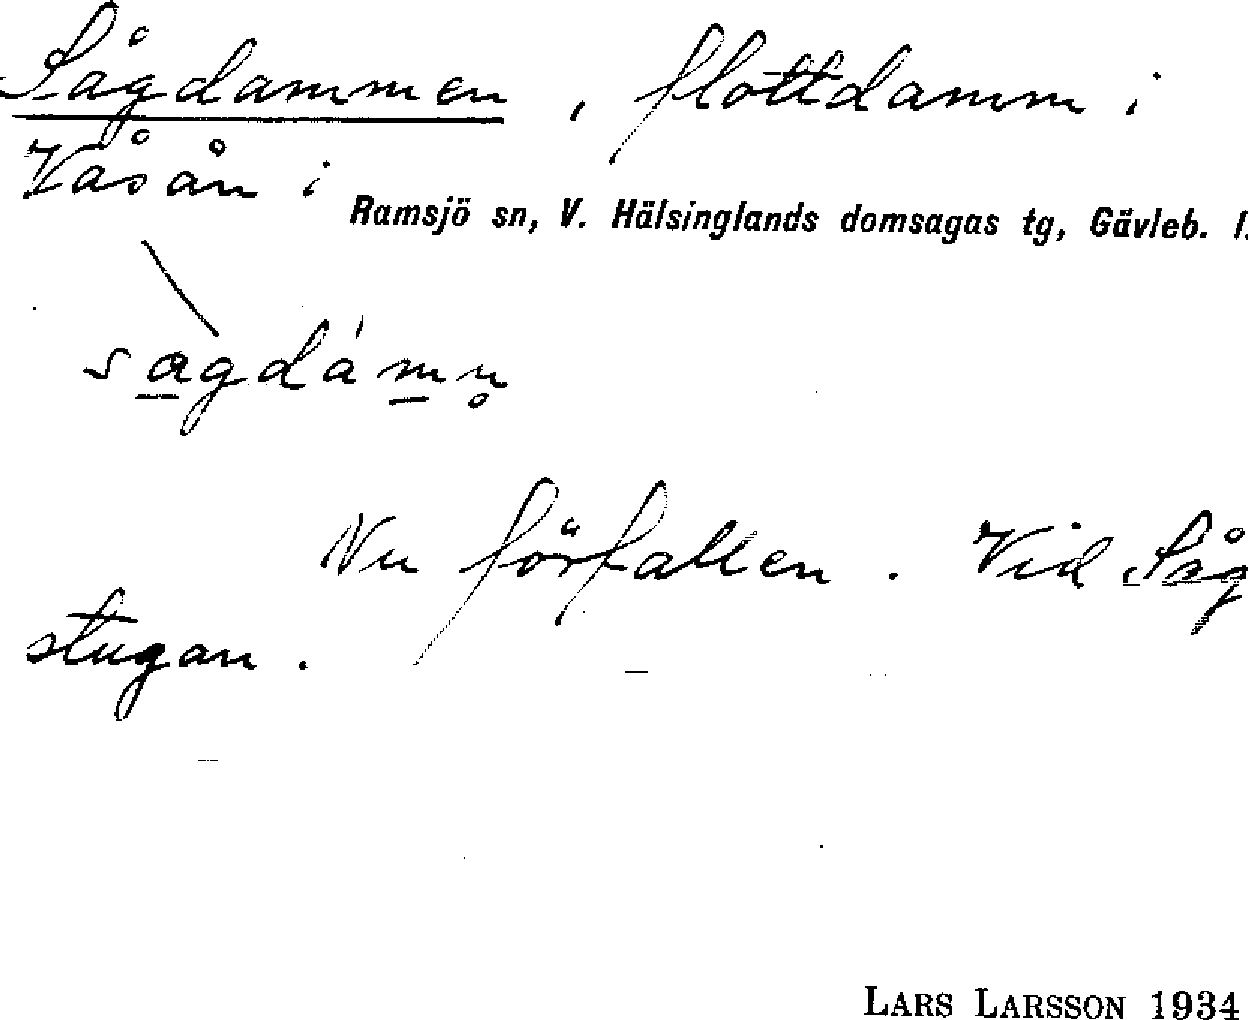 Sågdammen, flottdamm i
Våsån i
Ramsjö sn, V. Hälsinglands domsagas tg, Gävleb. l.
sagdámn̥
Nu förfallen. Vid Såg
stugan.
LARS LARSSON 1934